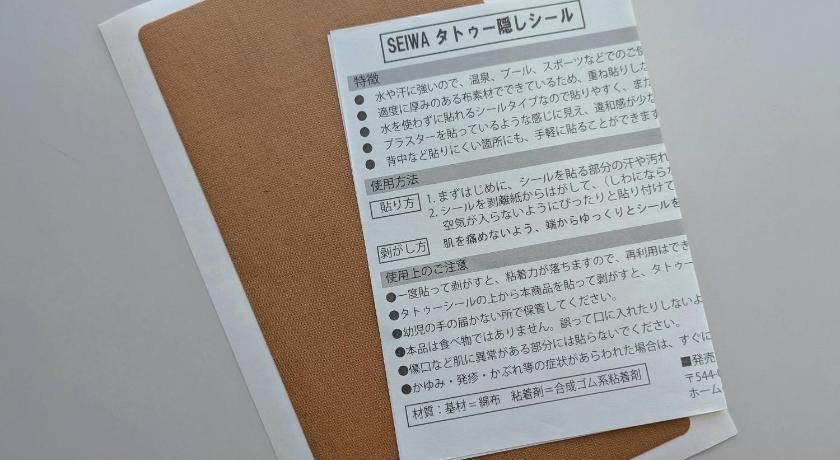 SEIWA タトゥー隠しシール
特徴
● 水や汗に強いので、温泉、プール、スポーツなどでのご使
● 適度に厚みのある布素材でできているため、重ね貼りした
● 水を使わずに貼れるシールタイプなので貼りやすく、また
● プラスターを貼っているような感じに見え、違和感が少な
● 背中など貼りにくい箇所にも、手軽に貼ることができます
使用方法
貼り方 1. まずはじめに、シールを貼る部分の汗や汚れ
2. シールを剥離紙からはがして、(しわになら
空気が入らないようにぴったりと貼り付けて
剥がし方 肌を痛めないよう、端からゆっくりとシールを
使用上のご注意
●一度貼って剥がすと、粘着力が落ちますので、再利用はでき
●タトゥーシールの上から本商品を貼って剥がすと、タトゥー
●幼児の手の届かない所で保管してください。
●本品は食べ物ではありません。誤って口に入れたりしないよ
●傷口など肌に異常がある部分には貼らないでください。
●かゆみ・発疹・かぶれ等の症状があらわれた場合は、すぐに
材質：基材＝綿布 粘着剤＝合成ゴム系粘着剤
■発売
〒544-
ホーム